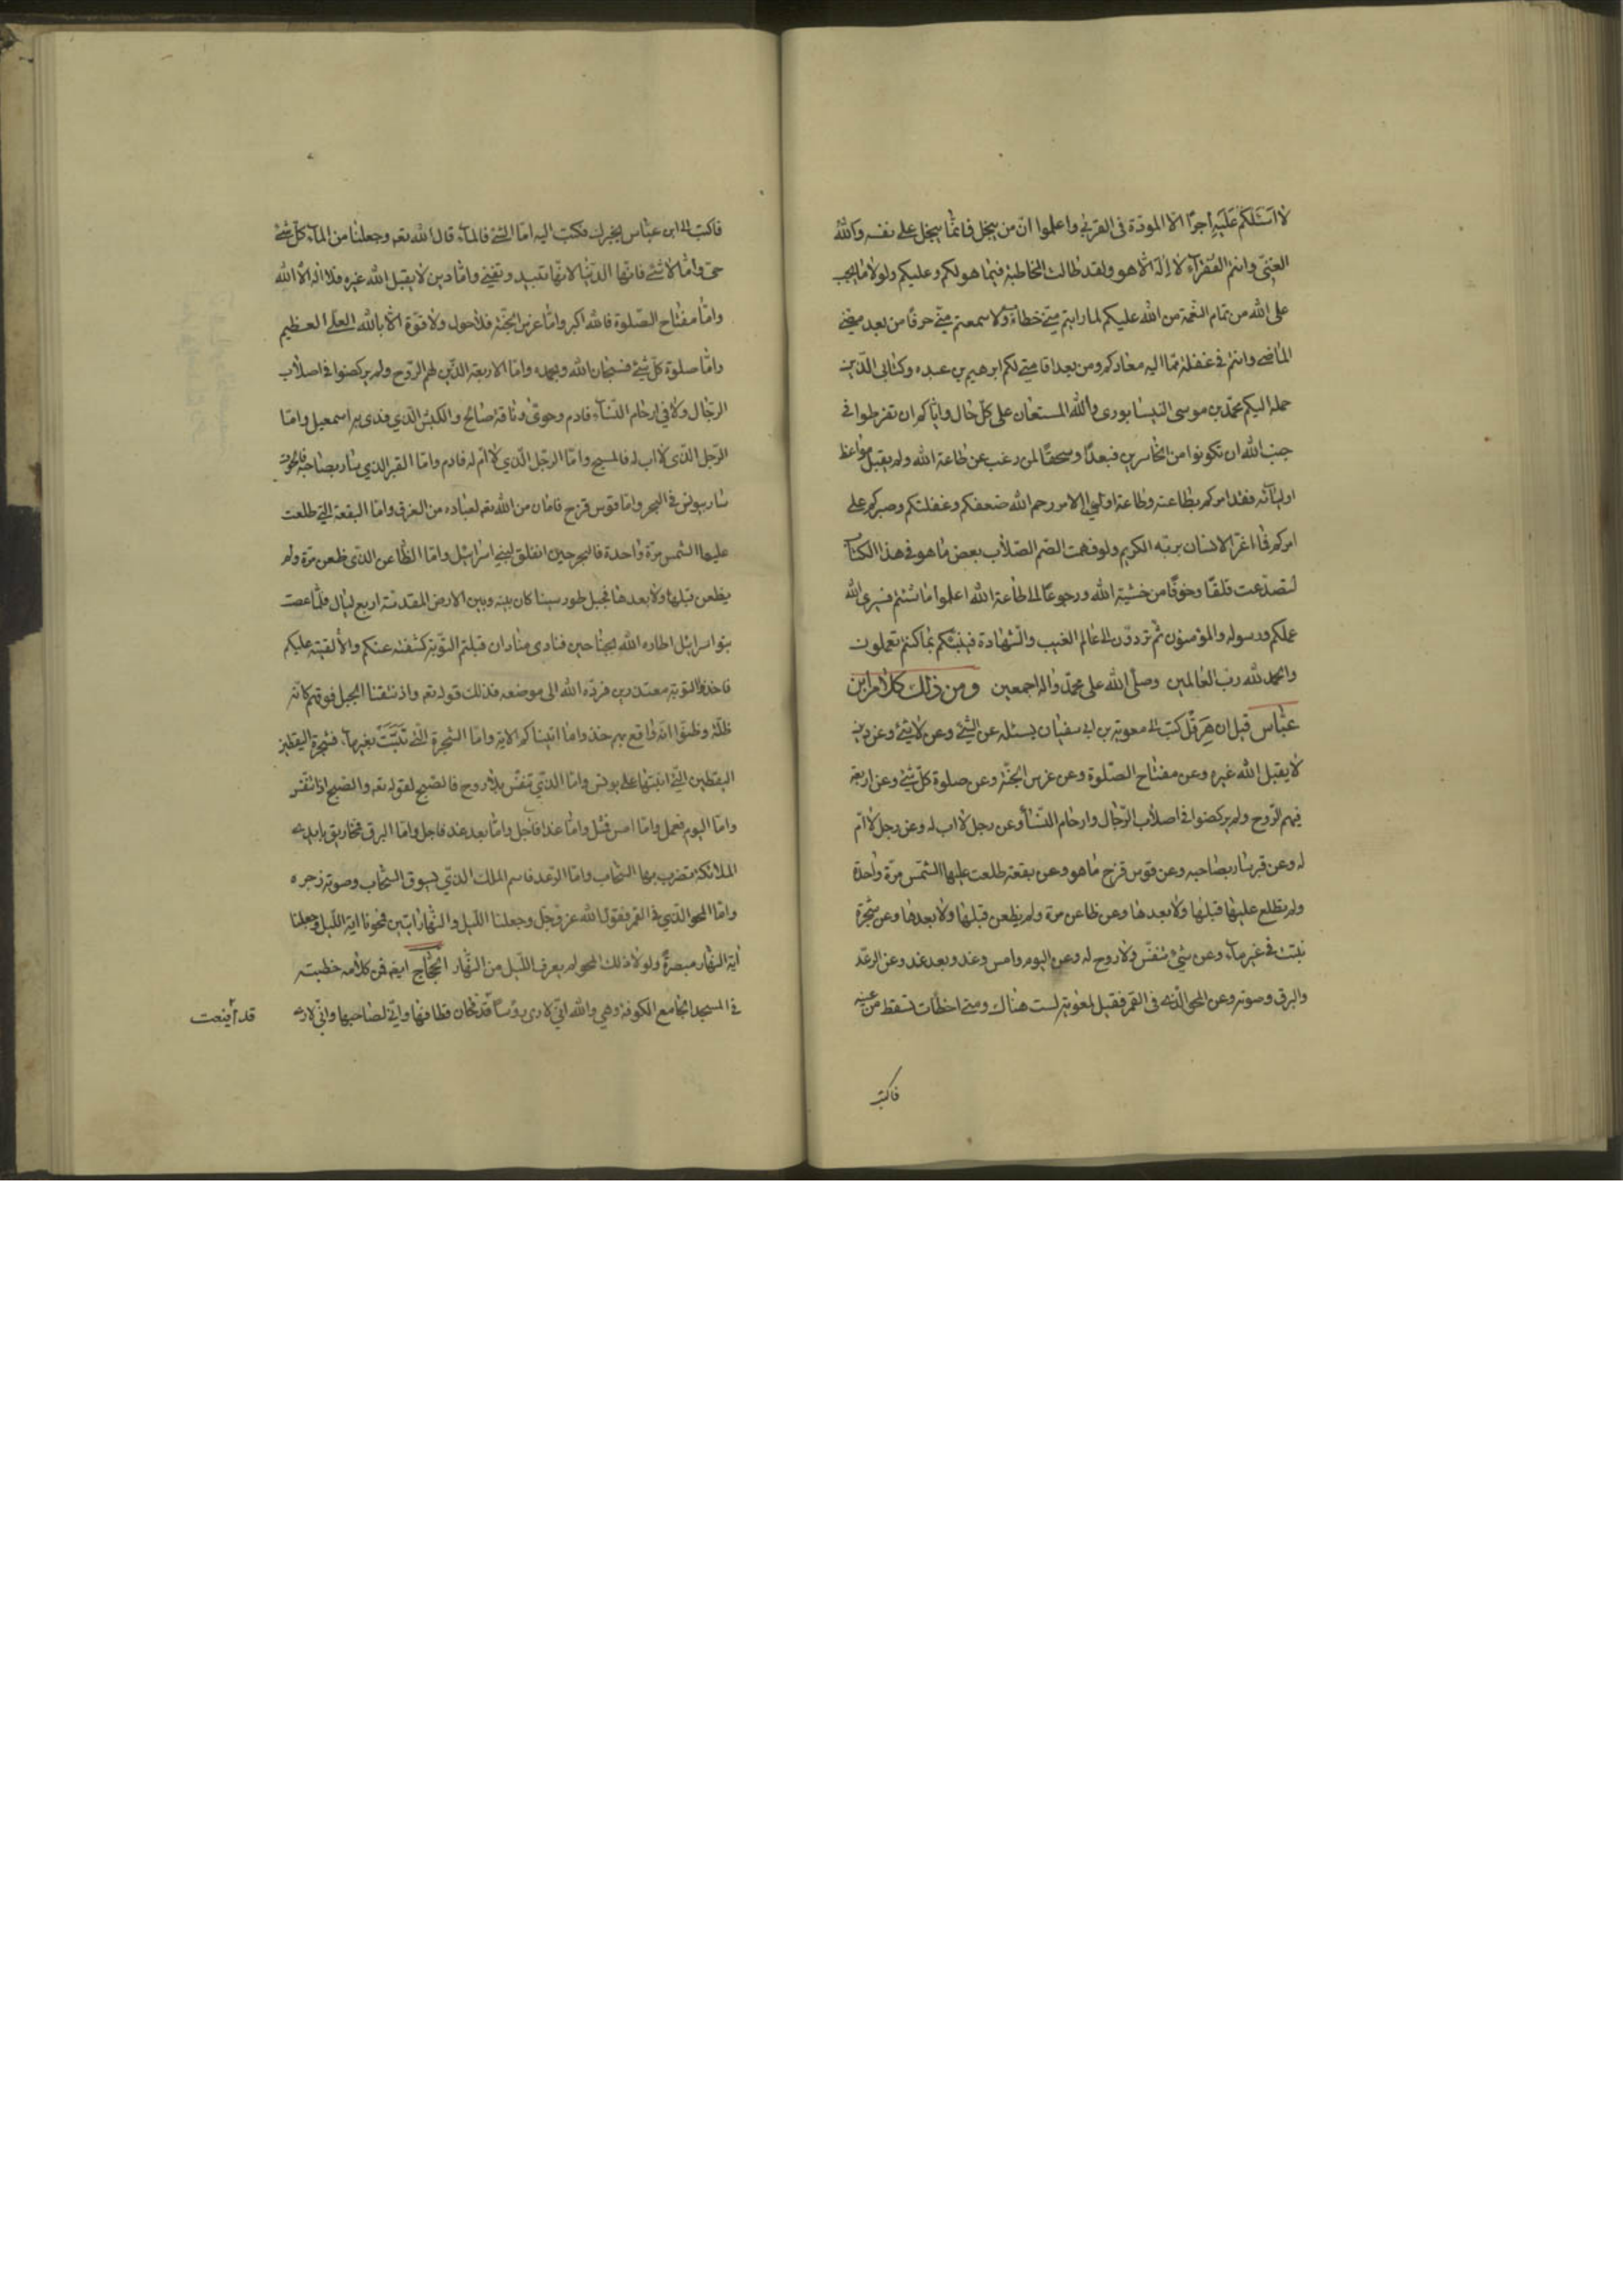 لا اسئلكم عليه أجرًا الا المودّة فى القربى واعلموا انّ من يبخل فانّما يبخل على نفسه والله
الغنىّ وانتم الفقرآء لا اله الا هو ولقد طالت المخاطبة فيما هو لكم وعليكم ولولا ما يجب
على الله من تمام النعمة من الله عليكم لما رايتم منّى خطا ولا سمعتم منّى حرفًا من بعد مضى
الماضى وانتم فى غفلة ممّا اليه معادكم ومن بعد اقامتى لكم ابرهيم بن عبده وكتابى الّذى
حمله اليكم محمّد بن موسى النيسابورى والله المستعان على كلّ حال وايّاكم ان تفرطوا فى
جنب الله ان تكونوا من الخاسرين فبعدًا وسحقًا لمن رغب عن طاعة الله ولم يقبل مواعظ
اوليآئه فقد امركم بطاعته وطاعة اولى الامر رحم الله ضعفكم وغفلتكم وصبركم على
امركم فما اغرّ الانسان بربّه الكريم ولو فهمت الصّم الصّلاب بعض ما هو فى هذا الكتاب
لتصدّعت قلقًا وخوفًا من خشية الله ورجوعًا الى طاعة الله اعملوا ما شئتم فسيرى الله
عملكم ورسوله والمؤمنون ثم تردّون الى عالم الغيب والشّهادة فينبّئكم بما كنتم تعملون
والحمد لله ربّ العالمين وصلّى الله على محمّد واله اجمعين ومن ذلك كلام ابن
عبّاس قيل ان هِرَقل كتب الى معوية بن ابى سفيان يسئله عن الشّئ وعن لا شئ وعن دين
لا يقبل الله غيره وعن مفتاح الصّلوة وعن غرس الجنّة وعن صلوة كلّ شئ وعن اربعة
فيهم الرّوح ولم يركضوا فى اصلاب الرّجال وارحام النّسآء وعن رجل لا اب له وعن رجل لا امّ
له وعن قبر سار بصاحبه وعن قوس قزح ما هو وعن بقعة طلعت عليها الشّمس مرّة واحدة
ولم تطلع عليها قبلها ولا بعدها وعن ظاعن مرّة ولم يظعن قبلها ولا بعدها وعن شجرة
نبتت فى غير مآء وعن شئ تنفّس ولا روح له وعن اليوم وامس وغد وبعد غد وعن الرعد
والبرق وصوته وعن المحو الّذى فى القمر فقيل لمعوية لست هناك ومتى اخطات تسقط من عينه
فاكتب
فاكتب الى ابن عبّاس يخبرك فكتب اليه امّا الشّئ فالمآء قال الله تعه وجعلنا من المآء كلّ شئ
حىّ وامّا لا شئ فانّها الدّنيا لانّها تبيد وتفنى وامّا دين لا يقبل الله غيره فلا اله الّا الله
وامّا مفتاح الصّلوة فالله اكبر وامّا غرس الجنّة فلا حول ولا قوّة الّا بالله العلّى العظيم
وامّا صلوة كلّ شئ فسبحان الله وبحمده وامّا الاربعة الذّين لهم الرّوح ولم يركضوا فى اصلاب
الرّجال ولا فى ارحام النّسآء فادم وحوّى وناقة صالح والكبش الّذى فدى به اسمعيل وامّا
الرّجل الذّى لا اب له فالمسيح وامّا الرجل الّذى لا امّ له فادم وامّا القبر الذى سار بصاحبه فالحوت
سار بيونس فى البحر وامّا قوس قزح فامان من الله تعه لعباده من الغرق وامّا البقعة التى طلعت
عليها الشمس مرّة واحدة فالبحر حين انفلق لبنى اسرائيل وامّا الظّاعن الذى ظعن مرّة ولم
يظعن قبلها ولا بعدها فجبل طور سينا كان بينه وبين الارض المقدسة اربع ليال فلمّا عصت
بنو اسرائيل اطاره الله بجناحين فنادى مناد ان قبلتم التّورية كشفته عنكم والّا القيته عليكم
فاخذوا التورية معتذرين فردّه الله الى موضعه فذلك قوله تعه واذ نتقنا الجبل فوقهم كانّه
ظلّة وظنّوا انّه واقع بهم خذوا ما اتيناكم الاية وامّا الشّجرة الّتى نَبَتَت بغير مآء فشجرة اليقطين
اليقطين الّتى انبتها على يونس وامّا الذّى تنفّس بلا روح فالصّبح لقوله تعه والصّبح اذا تنفّس
وامّا اليوم فعمل وامّا امس فمثل وامّا غدا فاجل وامّا بعد غد فامل وامّا البرق فمخاريق بايدى
الملائكة تضرب بها السّحاب وامّا الرّعد فاسم الملك الذّى يسوق السّحاب وصوته زجره
وامّا المحو الذّى فى القمر فقول الله عزّ وجّل وجعلنا اللّيل والنّهار ايتين فمحونا اية اللّيل وجعلنا
أية النّهار مبصرةً ولولا ذلك المحو لم يعرف اللّيل من النّهار الحجّاج ايضا فمن كلامه خطبته
فى المسجد الجامع الكوفة وهى والله انّى لارى رؤسًا قد حان قطافها وانّى لصاحبها وانّى لارى
قد أينعت